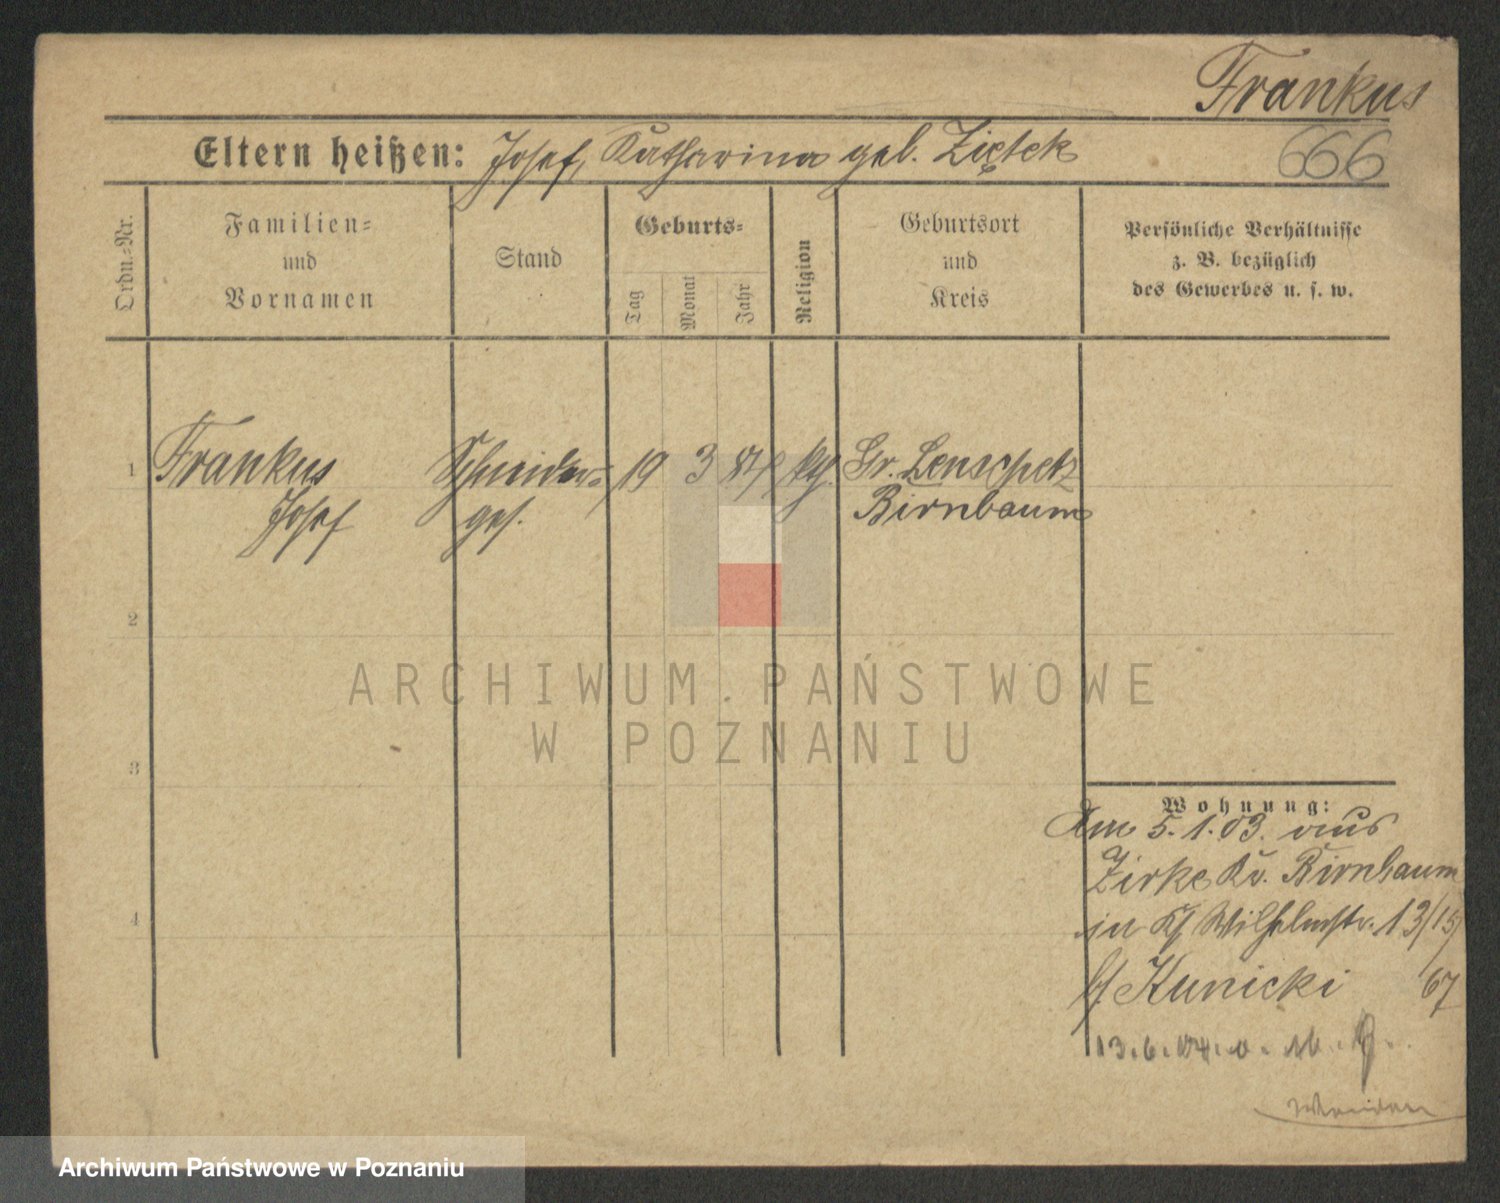 Frankus
Eltern heißen: Josef, Katharina geb. Ziętek
666
Ordn.-Nr.
Familien=
und
Vornamen
Stand
Geburts=
Tag
Monat
Jahr
Religion
Geburtsort
und
Kreis
Persönliche Verhältnisse
z. B. bezüglich
des Gewerbes u. s. w.
1 Frankus Schneider= 19 3 84 kth. Gr. Lenschetz
Josef ges. Birnbaum
2
ARCHIWUM PAŃSTWOWE
W POZNANIU
3
Wohnung:
Am 5.1.03. aus
Zirke Kr. Birnbaum
4
in Wilhelmstr. 13/15
b/ Kunicki 67
13.6.04.
Archiwum Państwowe w Poznaniu